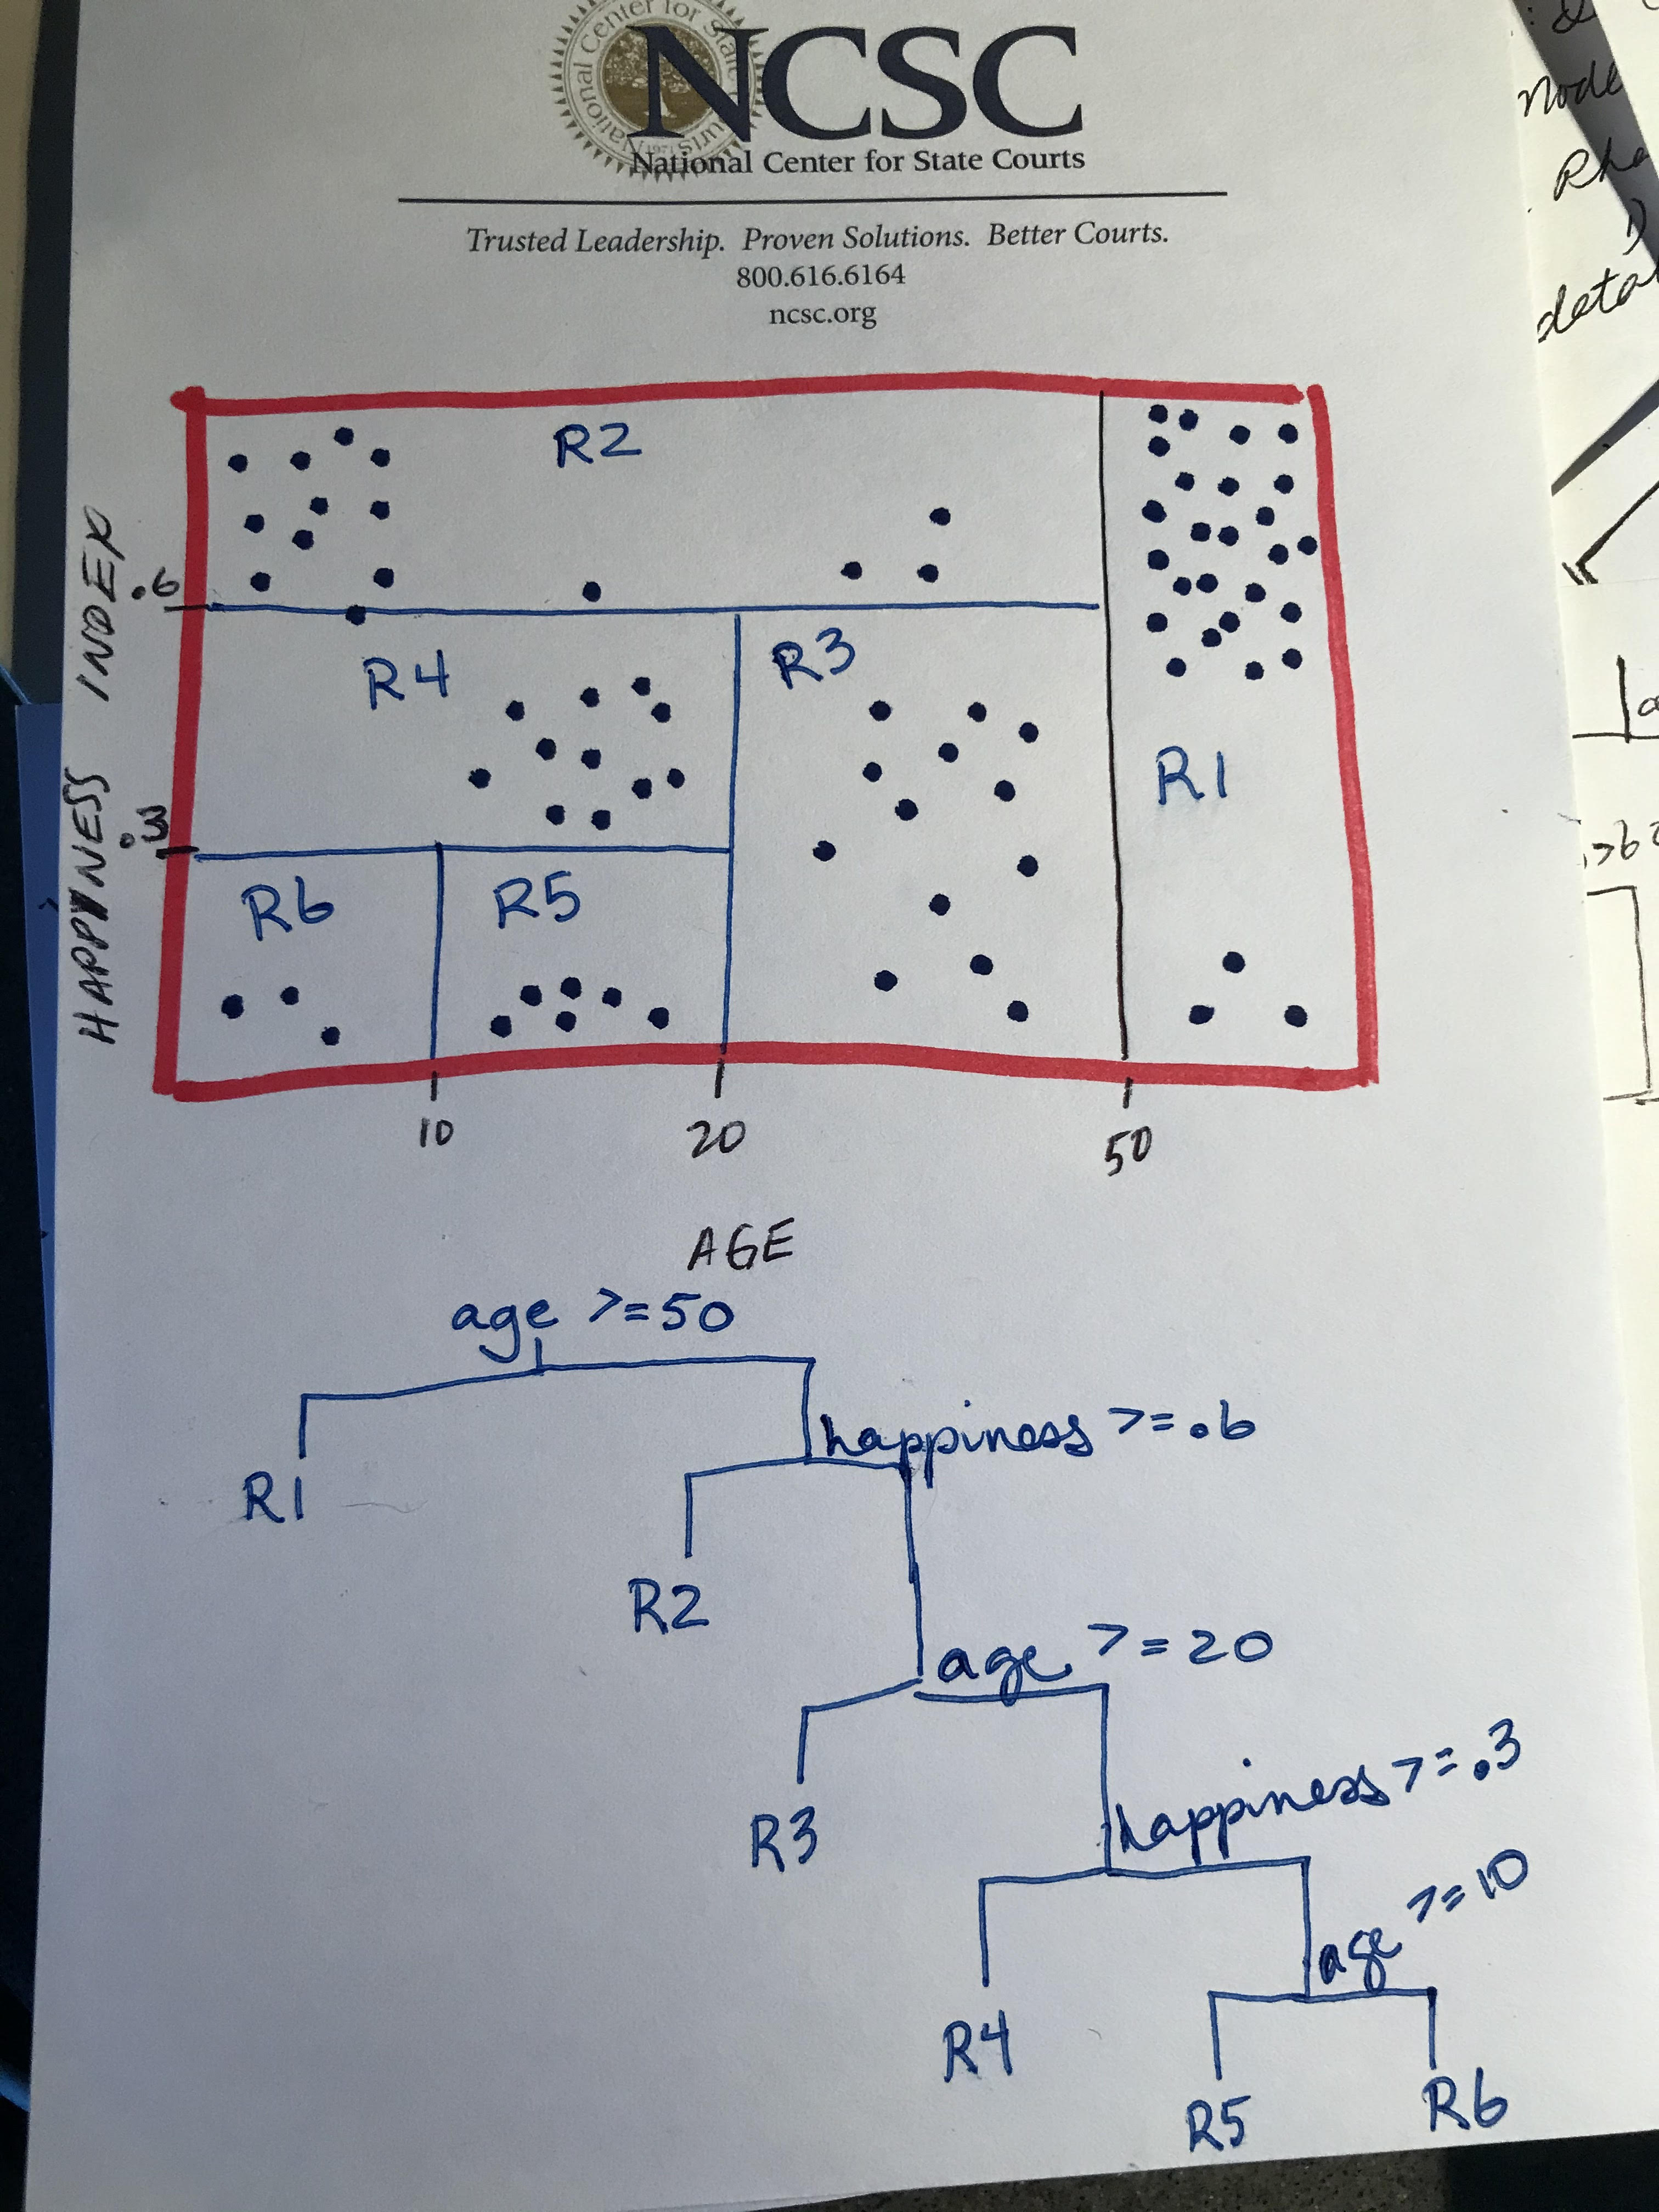 National Center for State Courts
1971
NCSC
National Center for State Courts
Trusted Leadership. Proven Solutions. Better Courts.
800.616.6164
ncsc.org
HAPPINESS INDEX
.6
.3
R2
R4
R3
R1
R6
R5
10
20
50
AGE
age >=50
happiness >=.6
R1
R2
age >=20
R3
happiness >=.3
age >=10
R4
R5
R6